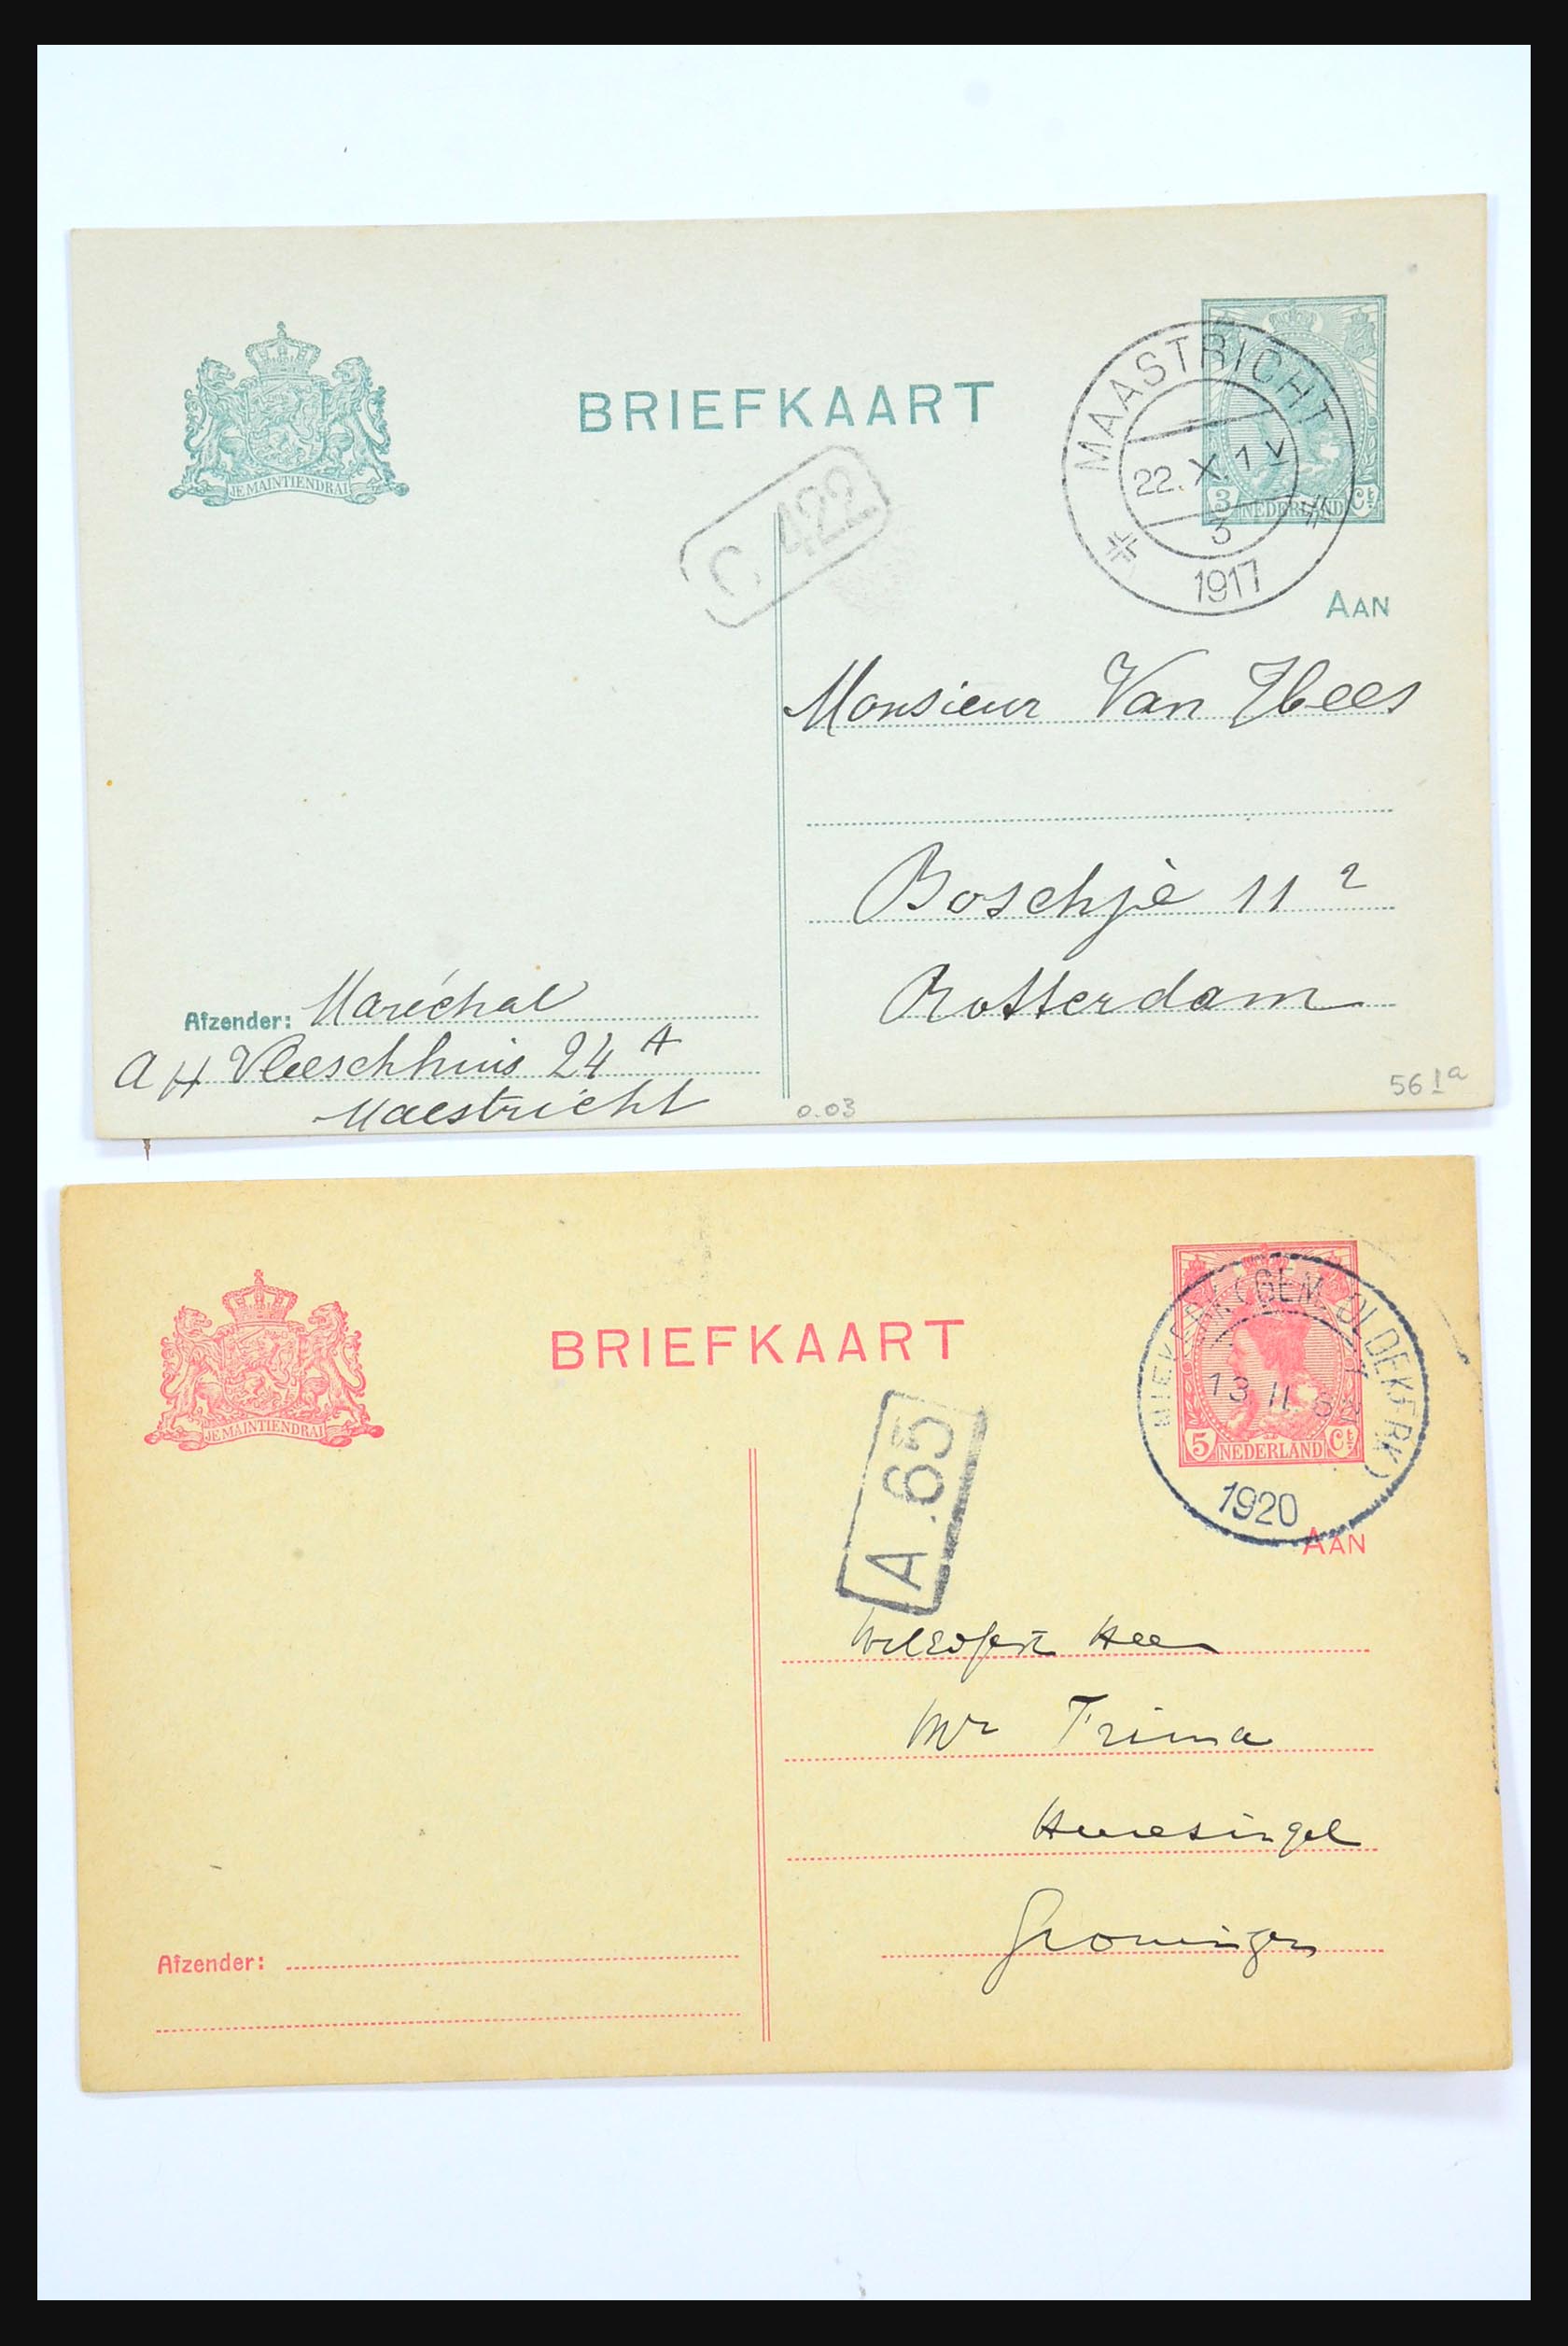 BRIEFKAART
JE MAINTIENDRAI
MAASTRICHT
22.X.1 V
3
1917
3 NEDERLAND Ct
C 422
AAN
Monsieur Van Hees
Boschjè 11 2
Rotterdam
Afzender: Maréchal
a H Vleeschhuis 24 A
Maestricht
0.03
56 Ia
BRIEFKAART
JE MAINTIENDRAI
NIEKERK (GEM. OLDEKERK)
13 II
1920
5 NEDERLAND Ct
A.65
AAN
WelEdgestr Heer
Mr Trima
Heeresingel
Groningen
Afzender: